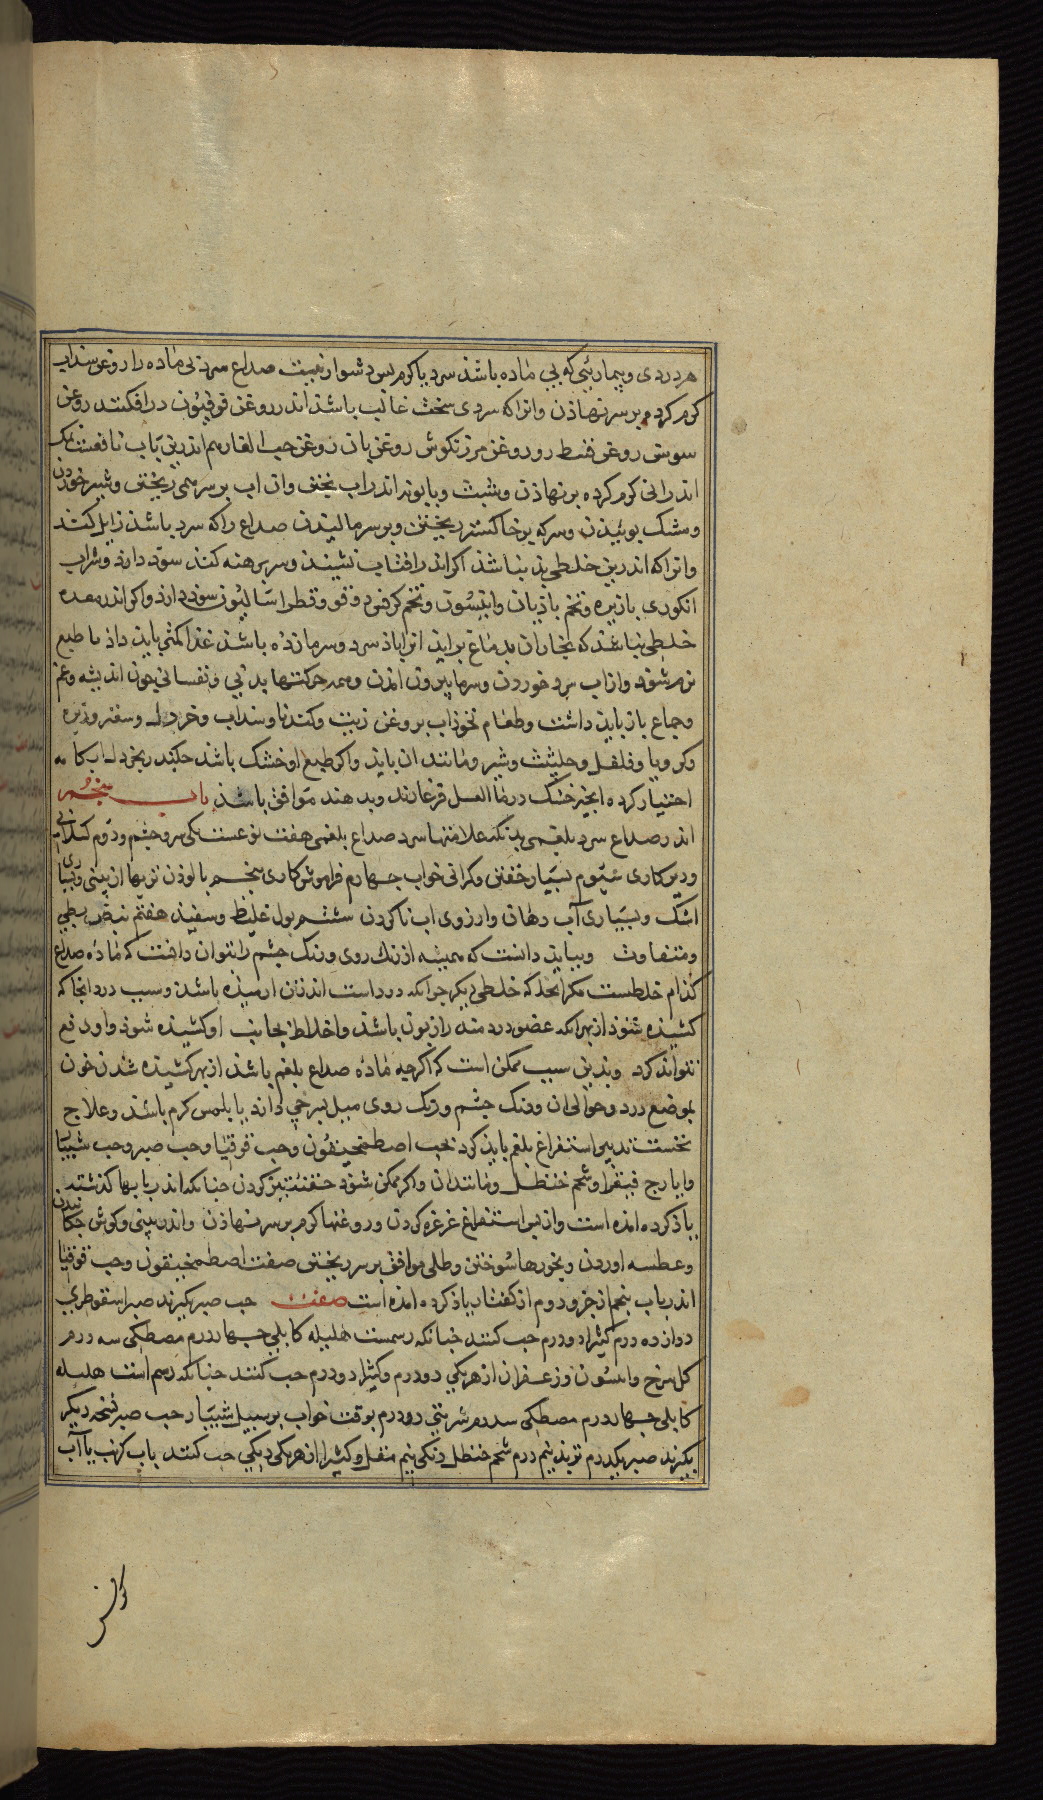 هر دردی و بیماریی که بی ماده باشذ سرد یا کرم بس دشوار نیست صداع سرد بی ماده را روغن سنداب
کرم کرده بر سر نهاذن وانرا که سردی سخت غالب باشذ اندر روغن فرفیون درافکنند روغن
سوسن روغن قسط و روغن مرزنکوش روغن بان روغن حب الغار هم اندرین باب نافعست نمک
اندرانی کرم کرده بر نهاذن وشبث وبابونه اندر اب بختن وان اب بر سر همی ریختن وشیر خوردن
ومشک بوییذن وسرکه بر خاکستر ریختن وبر سر مالیذن صداع را که سرد باشذ زایل کنند
وانرا که اندرین خلطی بذ نباشذ اکر اندر افتاب نشیند وسر برهنه کند سوذ دارذ وشراب
انکوری با زیره وتخم باذیان وانیسون وتخم کرفس ودوقو وفطراسالیون سوذ دارذ واکر اندر معده
خلطی نباشذ که بخار ان بدماغ براید انرا باذ سرد وسرما زده باشذ غذا کمتر بایذ داذ تا طبع
نرم شوذ واز اب سرد خوردن وسرما بیرون امذن وهمه حرکتهاء بدنی ونفسانی جون اندیشه وغم
وجماع باز بایذ داشت وطعام نخوذاب بروغن زیت وکندنا وسنداب وخردل وسعتر وزیره
وکرویا وفلفل وحلتیث وشیر ومانند ان بایذ واکر طبع او خشک باشذ جکندر بخردل اب کامه
اختیار کرده انجیر خشک در ماء العسل فرغارند وبدهند موافق باشذ باب پنجم
اندر صداع سرد بلغمی بدنکه علامتهاء سرد صداع بلغمی هفت نوعست یکی سر وجشم ودوم کسلانی
ودیرکاری سیوم بسیار خفتن وکرانی خواب جهارم فراموش کاری بنجم بالوذن تریها از بینی وبسیاری
اشک وبسیاری آب دهان وارزوی اب ناکردن ششم بول غلیظ وسفیذ هفتم نبض بطی
ومتفاوت وببایذ دانست که همیشه از رنک روی ورنک جشم را نتوان دانست که ماده صداع
کذام خلطست مکر انجذ که خلطی دیکر جرانکه درد است اندر تن ارمیذه باشذ وسبب درد انجا که
کشیذه شوذ از بهرانکه عضو دردمند را زبون باشذ واخلاط بجانب او کشیذه شوذ واو دفع
نتواند کرد وبذین سبب ممکن است که اکرجه ماده صداع بلغم باشذ از بهر کشیذه شذن خون
بموضع درد وحوالی ان ورنک جشم ورنک روی میل بسرخی دارد یا بلمس کرم باشذ وعلاج
نخست تدبیر استفراغ بلغم بایذ کرد بحب اصطمخیقون وحب قوقایا وحب صبر وحب شبیار
وایارج فیقرا وشحم حنظل ومانند ان واکر ممکن شوذ حقنه تیز کردن جنانکه اندر بابهاء کذشته
یاذ کرده امذه است واز بس استفراغ غرغره کردن وروغنهاء کرم بر سر نهاذن واندر بینی وکوش جکانیذن
وعطسه اوردن وبخورها سوختن وطلی موافق بر سر ریختن صفت اصطمخیقون وحب قوقایا
اندر باب بنجم از جزو دوم از کفتار یاذ کرده امذه است صفت حب صبر کیرند صبر اسقوطری
دوازده درم کثیرا دو درم حب کنند جنانکه رسمست هلیله کابلی جهار درم مصطکی سه درم
کل سرخ وانیسون وزعفران از هریکی دو درم وکثیرا دو درم حب کنند جنانکه رسم است هلیله
کابلی جهار درم مصطکی سه درم شربتی دو درم بوقت خواب بر سبیل شبیار حب صبر نسخه دیکر
بکیرند صبر یکدرم تربذ نیم درم شحم حنظل دنکی نیم مقل وکثیرا از هریکی دنکی حب کنند باب کرنب یا آب
کرفس